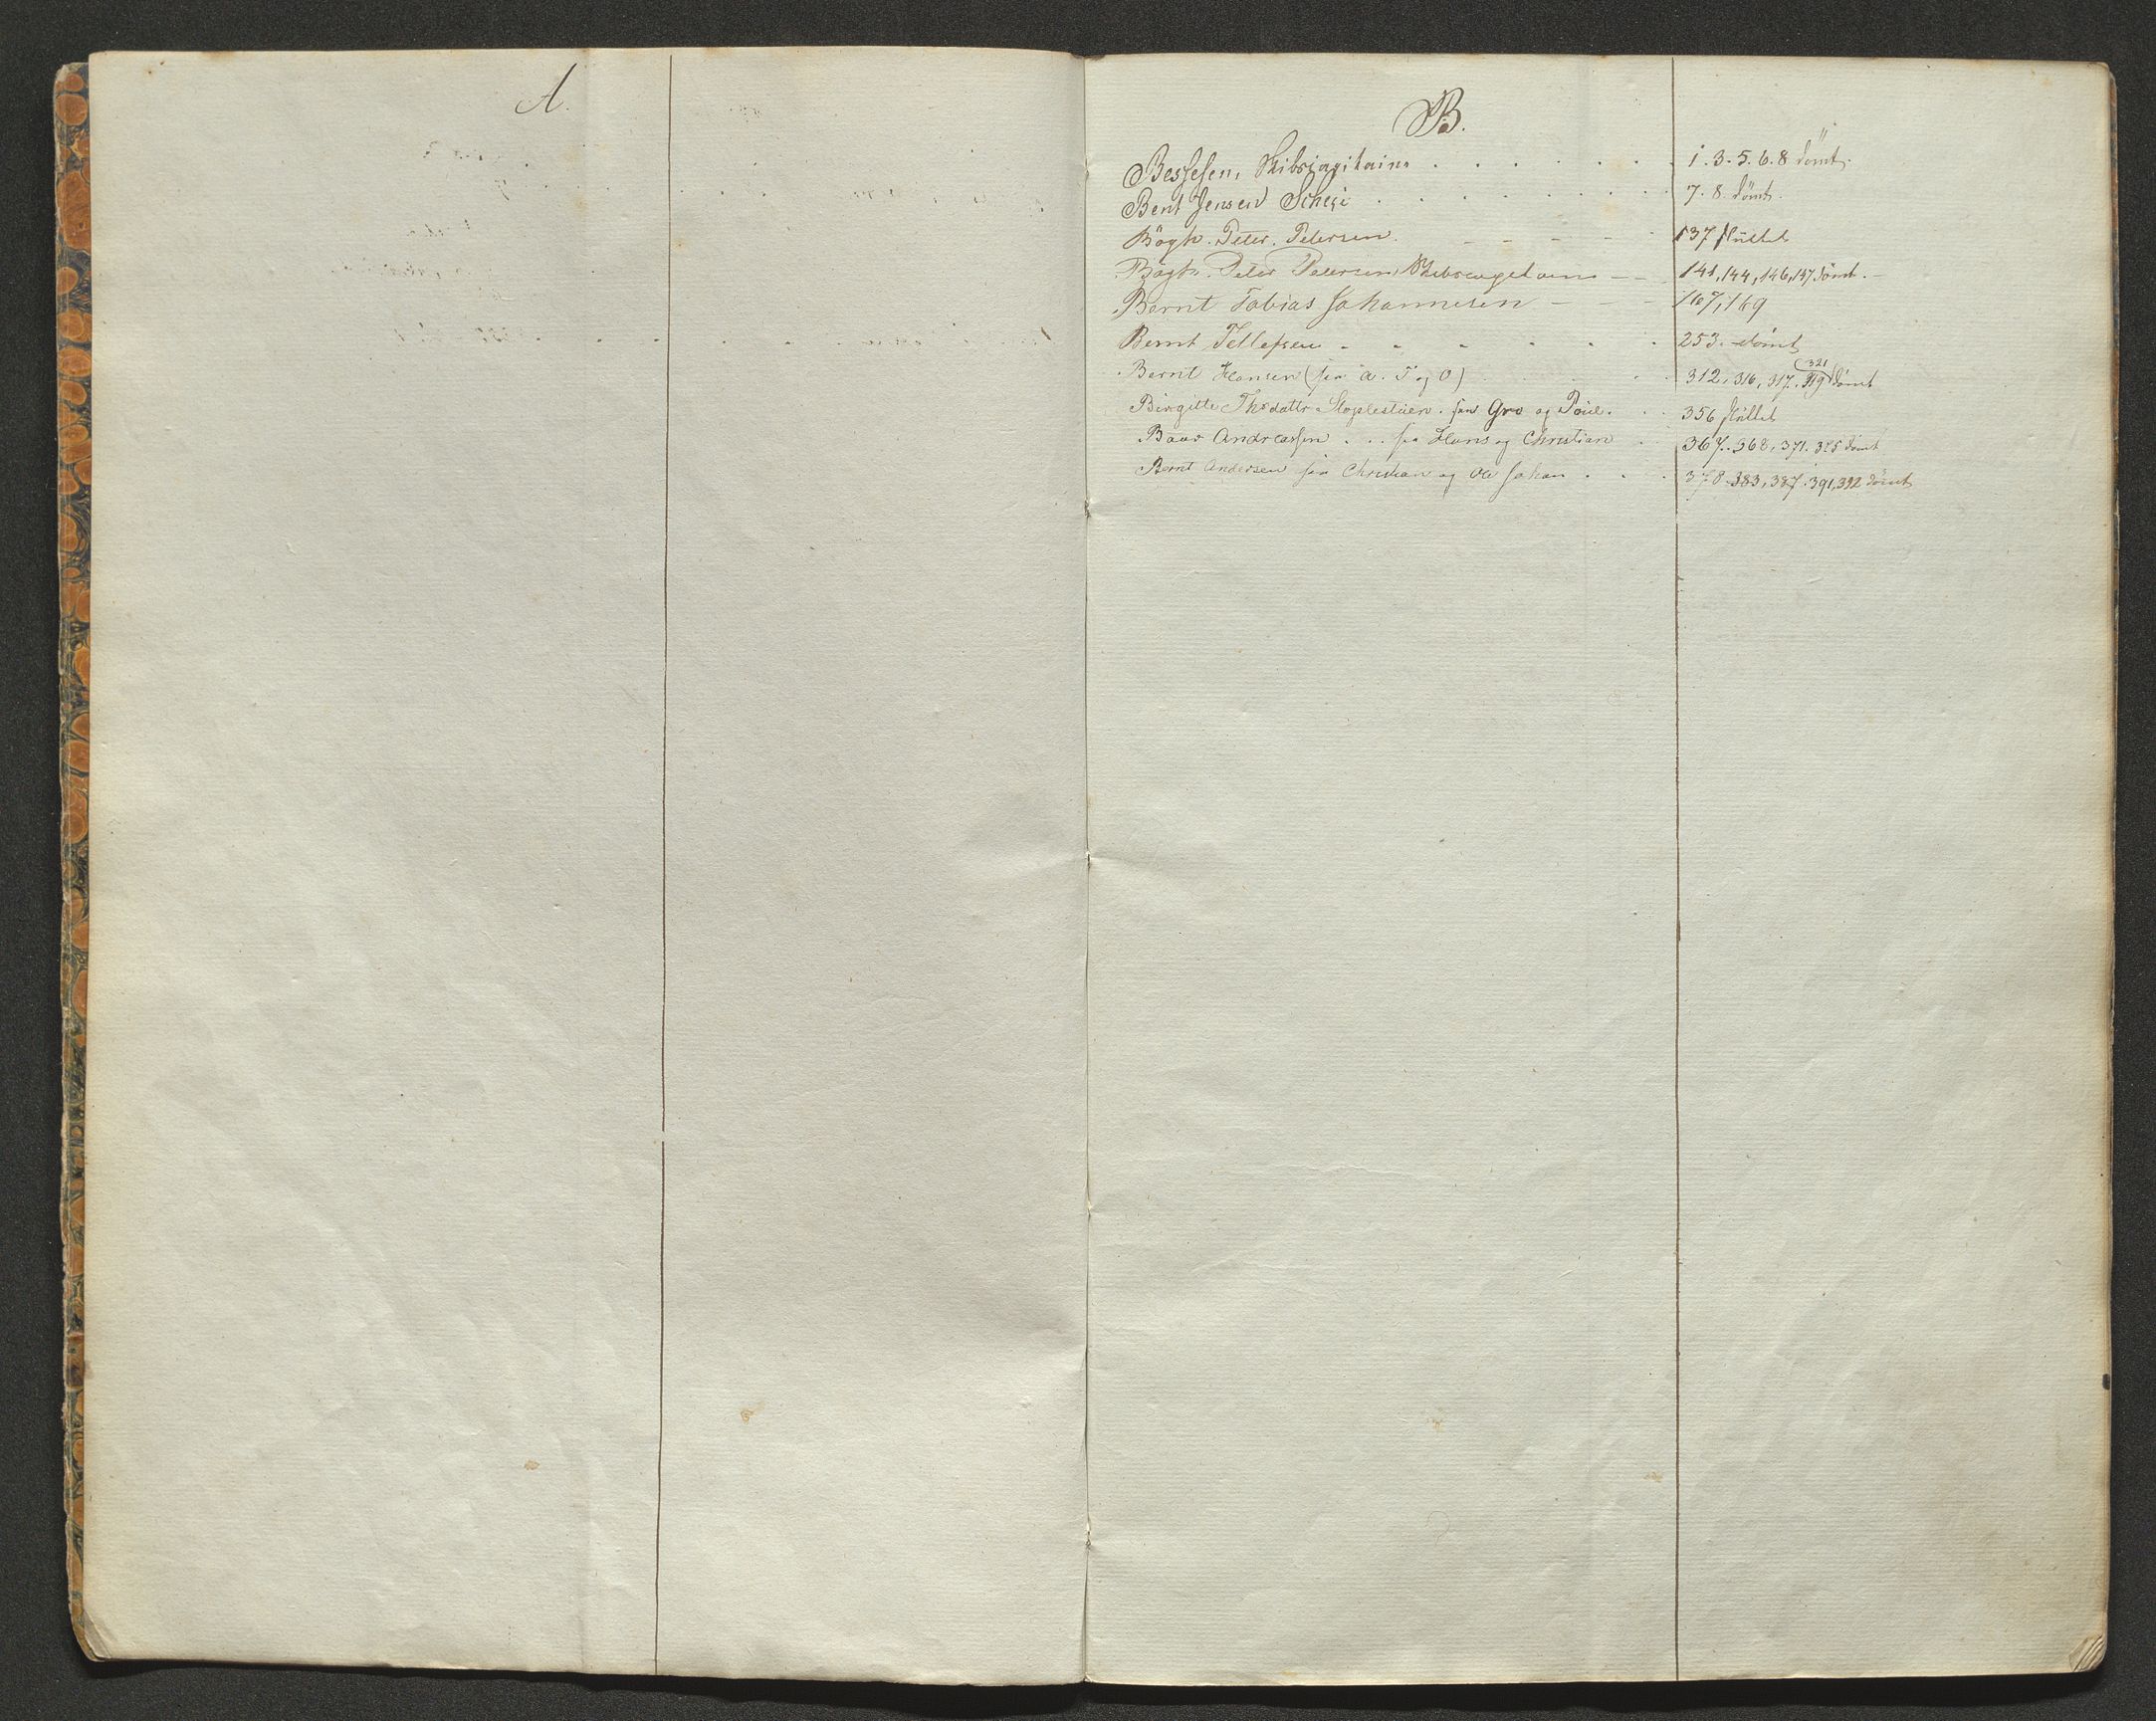 A.
B.
Bessesen, Skibscapitaine . . . . . . . 1. 3. 5. 6. 8 dömt.
Bent Jensen . . . . . . . . 7. 8. dömt.
Bögh. Peter. Petersen. - - - - 137 sluttet
Bögh. Peter Petersen, Skibscapitaine - - 141, 144, 146, 147 dömt. -
Bernt Tobias Johannesen - - - 167, 169
Bernt Tellefsen - - - - - - 253. dömt
321
Bernt Hansen (see A. T og O) . . . . 312, 316, 317. 319 dömt
Birgitte Thodattr . see Gro og Poul. . . 356 sluttet
Baar Andreassen . . . see Hans og Christian . . 367. 368, 371. 375 dömt
Bernt Andersen see Christian og Ole Johan . . . 378. 383, 387. 391, 392 dömt